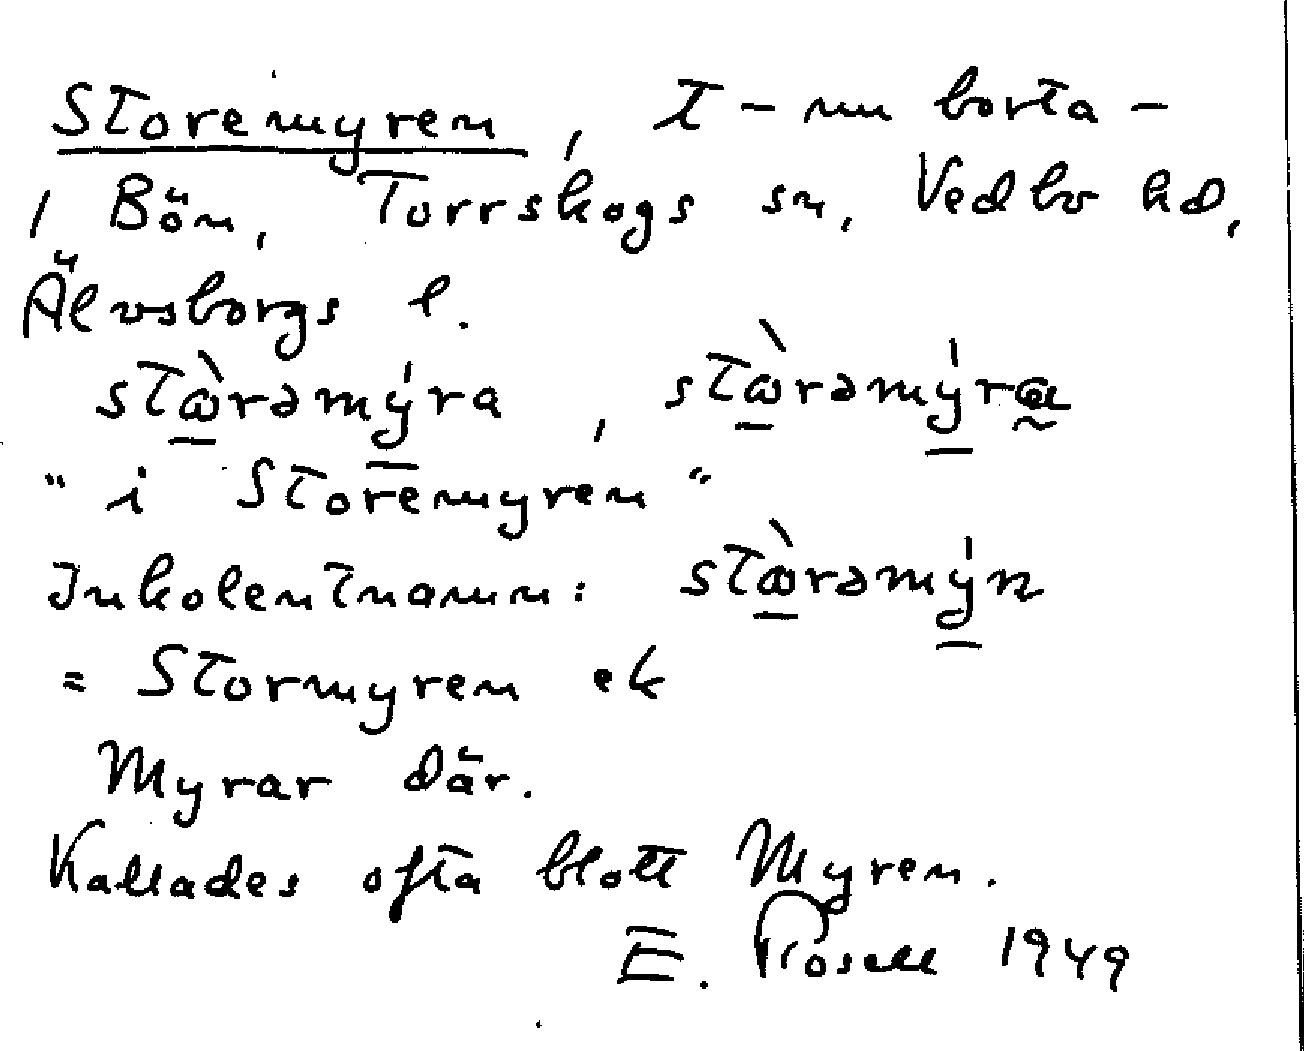 Storemyren, T - nu borta -
i Bön, Torrskogs sn, Vedbo hd,
Älvsborgs l.
stɷ̀rəmýra, stɷ̀rəmýra
"i Storemyren"
Inkolentnamn: stɷ̀rəmýn
= Stormyren ek
Myrar där.
Kallades ofta blott Myren.
E. Rosell 1949